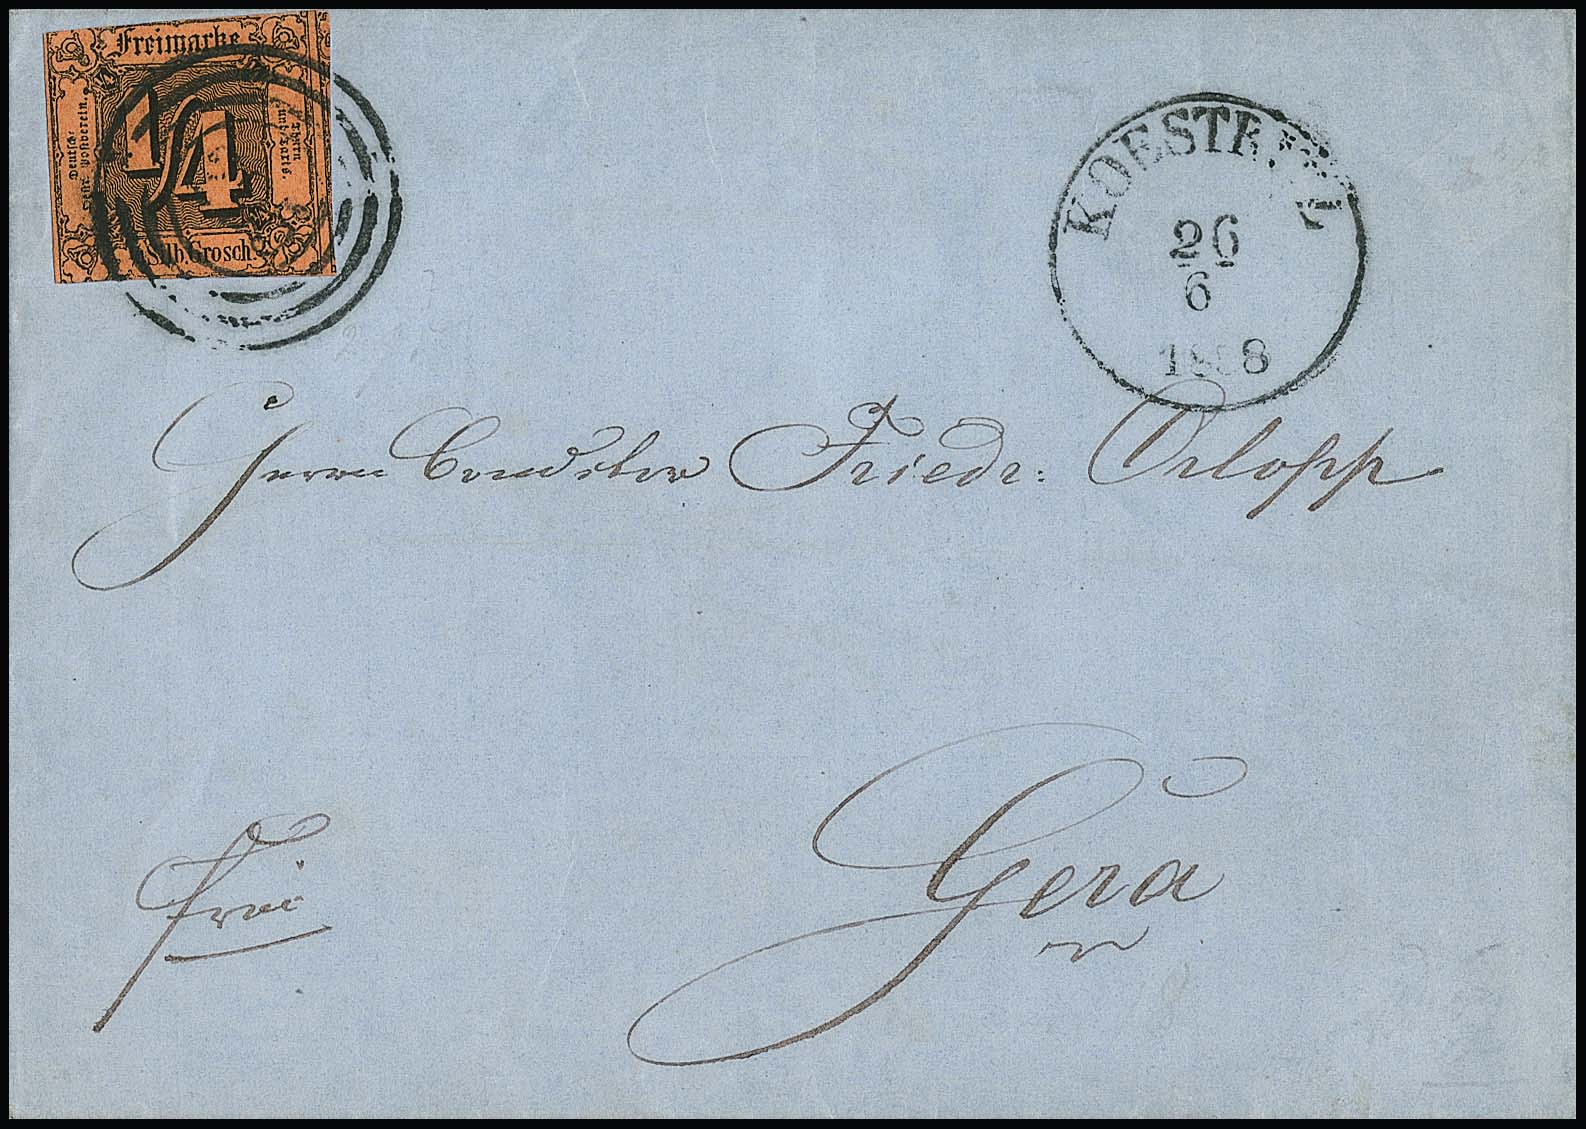 Freimarke
Deutsch-Oestr. Postverein.
1/4
Thurn und Taxis.
Silb. Grosch.
KOESTRITZ
26
6
1858
Herrn Conditor Friedr: Orlopp
Frei
Gera